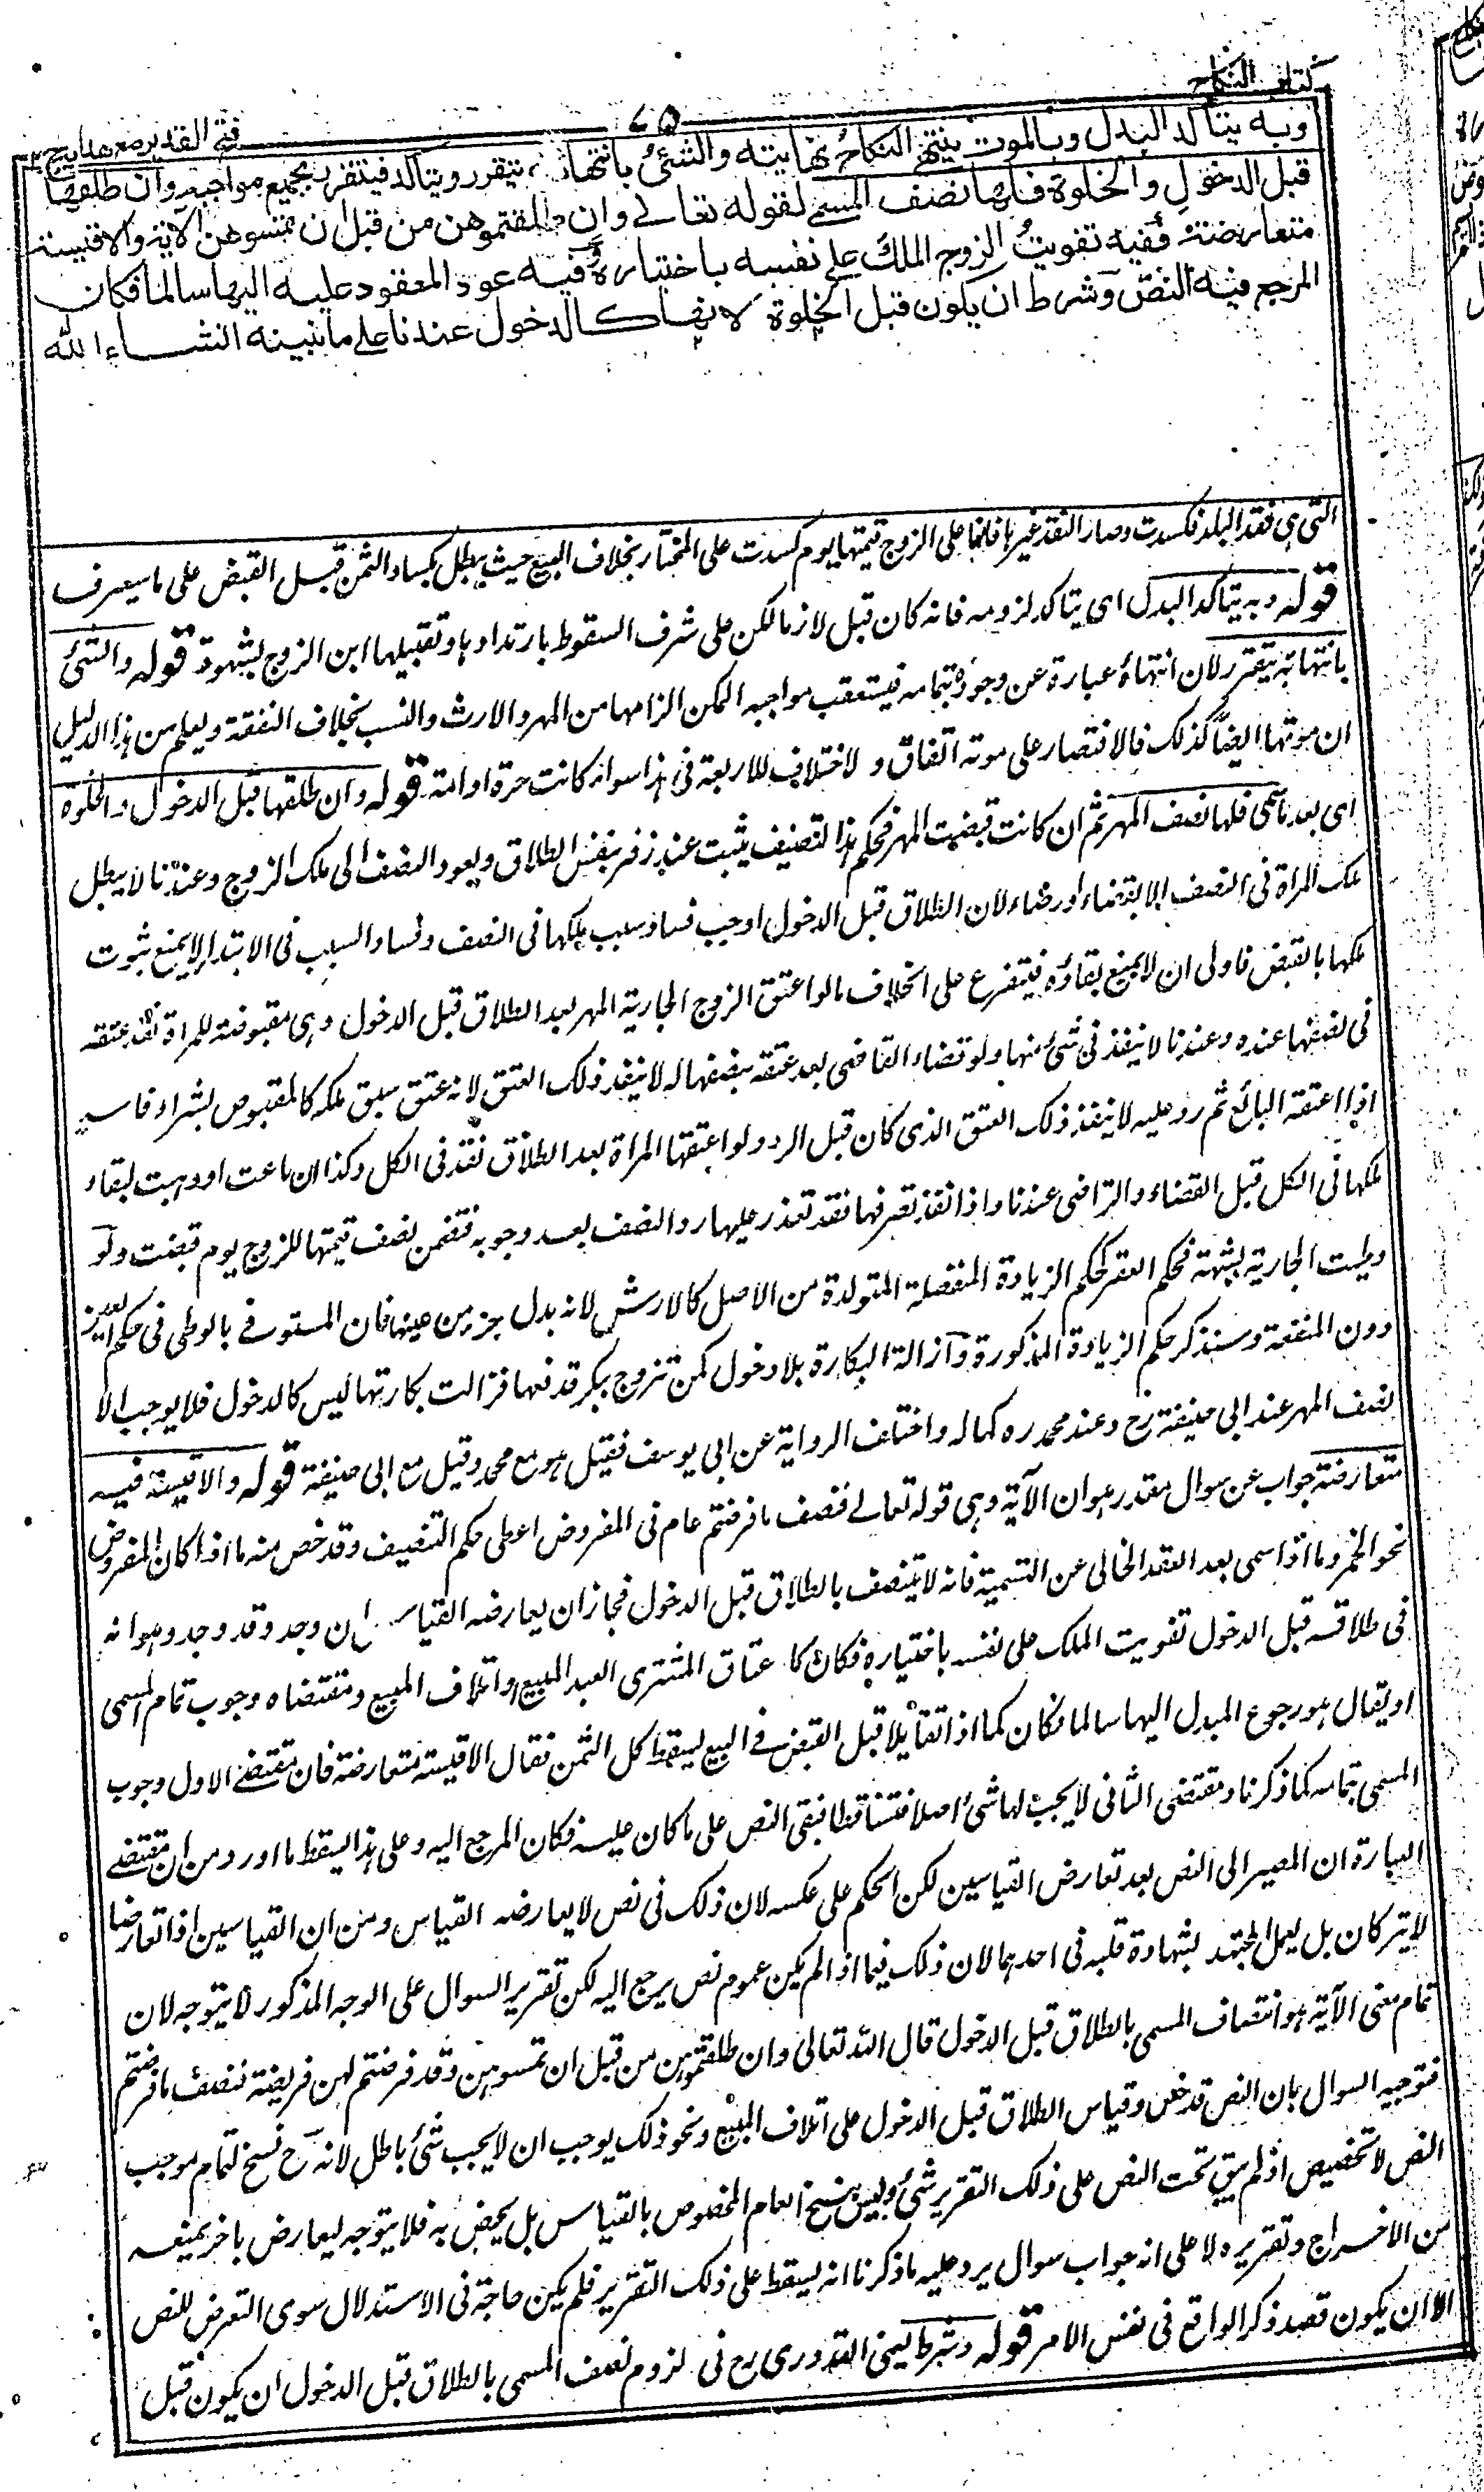 كتاب النكاح
٧٥
فتح القدير مع هدايه ج ٣
وبه يتأكد البدل وبالموت ينتهي النكاح نهايته والشئ بانتهائه يتقرر ويتأكد فيتقرر بجميع مواجبه وان طلقها
قبل الدخول والخلوة فلها نصف المسمى لقوله تعالى وان طلقتموهن من قبل ان تمسوهن الآية والاقيسة
متعارضة ففيه تفويت الزوج الملك على نفسه باختياره وفيه عود المعقود عليه اليها سالما فكان
المرجع فيه النص وشرط ان يكون قبل الخلوة لانها كالدخول عندنا على ما نبينه انشاء الله
التى هى نقد البلد فكسدت وصار النقد غيرها فانما على الزوج قيمتها يوم كسدت على المختار بخلاف البيع حيث يبطل بكساد الثمن قبل القبض على ما سيعرف
قوله وبه يتأكد البدل اى يتأكد لزومه فانه كان قبل لازما لكن على شرف السقوط بارتدادها وتقبيلها ابن الزوج بشهوة قوله والشئ
بانتهائه يتقرر لان انتهاءه عبارة عن وجوده بتمامه فيستعقب مواجبه الممكن الزامها من المهر والارث والنسب بخلاف النفقة ويعلم من هذا الدليل
ان موتها ايضا كذلك فالاقتصار على موته اتفاق ولا خلاف للاربعة فى هذا سواء كانت حرة او امة قوله وان طلقها قبل الدخول والخلوة
اى بعد ما سمى فلها نصف المهر ثم ان كانت قبضت المهر فحكم هذا التنصيف يثبت عند زفر بنفس الطلاق ويعود النصف الى ملك الزوج وعندنا لا يبطل
ملك المرأة فى النصف الا بقضاء او رضاء لان الطلاق قبل الدخول اوجب فساد سبب ملكها فى النصف وفساد السبب فى الابتداء لا يمنع ثبوت
ملكها بالقبض فاولى ان لا يمنع بقاؤه فيتفرع على الخلاف ما لو اعتق الزوج الجارية المهر بعد الطلاق قبل الدخول وهى مقبوضة للمرأة نفذ عتقه
فى نصفها عنده وعندنا لا ينفذ فى شئ منها ولو قضاء القاضى بعد عتقه بنصفها له لا ينفذ ذلك العتق لانه عتق سبق ملكه كالمقبوض بشراء فاسد
اذا اعتقه البائع ثم رد عليه لا ينفذ ذلك العتق الذى كان قبل الرد ولو اعتقها المرأة بعد الطلاق نفذ فى الكل وكذا ان باعت او وهبت لبقاء
ملكها فى الكل قبل القضاء والتراضى عندنا واذا نفذ تصرفها فقد تعذر عليها رد النصف بعد وجوبه فتضمن نصف قيمتها للزوج يوم قبضت ولو
وطيت الجارية بشبهة فحكم العقر كحكم الزيادة المنفصلة المتولدة من الاصل كالارش لانه بدل جزء من عينها فان المستوفى بالوطى فى حكم العين
دون المنفعة وسنذكر حكم الزيادة المذكورة وازالة البكارة بلا دخول كمن تزوج بكرا فدفعها فزالت بكارتها ليس كالدخول فلا يوجب الا
نصف المهر عند ابى حنيفة رح وعند محمد ره كماله واختلف الرواية عن ابى يوسف فقيل هو مع محمد وقيل مع ابى حنيفة قوله والاقيسة فيه
متعارضة جواب عن سوال مقدر هو ان الآية وهى قوله تعالى فنصف ما فرضتم عام فى المفروض اعطى حكم التنصيف وقد خص منه ما اذا كان المفروض
نحو الخمر وما اذا سمى بعد العقد الخالى عن التسمية فانه لا يتنصف بالطلاق قبل الدخول فجاز ان يعارضه القياس ان وجد وقد وجد وهو انه
فى طلاقه قبل الدخول تفويت الملك على نفسه باختياره فكان كاعتاق المشترى العبد المبيع او اتلاف المبيع ومقتضاه وجوب تمام المسمى
او يقال هو رجوع المبدل اليها سالما فكان كما اذا تقايلا قبل القبض فى البيع يسقط كل الثمن فقال الاقيسة متعارضة فان مقتضى الاول وجوب
المسمى بتمامه كما ذكرنا ومقتضى الثانى لا يجب لها شئ اصلا فتساقطا فبقى النص على ما كان عليه فكان المرجع اليه وعلى هذا يسقط ما اورد من ان مقتضى
العبارة ان المصير الى النص بعد تعارض القياسين لكن الحكم على عكسه لان ذلك فى نص لا يعارضه القياس ومن ان القياسين اذا تعارضا
لا يتركان بل يعمل المجتهد بشهادة قلبه فى احدهما لان ذلك فيما اذا لم يكن عموم نص يرجع اليه لكن تقرير السوال على الوجه المذكور لا يتوجه لان
تمام معنى الآية هو انتصاف المسمى بالطلاق قبل الدخول قال الله تعالى وان طلقتموهن من قبل ان تمسوهن وقد فرضتم لهن فريضة فنصف ما فرضتم
فتوجيه السوال بان النص قد خص وقياس الطلاق قبل الدخول على اتلاف المبيع ونحو ذلك يوجب ان لا يجب شئ باطل لانه ح نسخ لتمام موجب
النص لا تخصيص اذ لم يبق تحت النص على ذلك التقرير شئ وليس ينسخ العام المخصوص بالقياس بل يخص به فلا يتوجه ليعارض باخر يمنعه
من الاخراج وتقريره لا على انه جواب سوال يرد عليه ما ذكرنا انه يسقط على ذلك التقرير فلم يكن حاجة فى الاستدلال سوى التعرض للنص
الا ان يكون قصد ذكر الواقع فى نفس الامر قوله وشرط يعنى القدورى رح فى لزوم نصف المسمى بالطلاق قبل الدخول ان يكون قبل